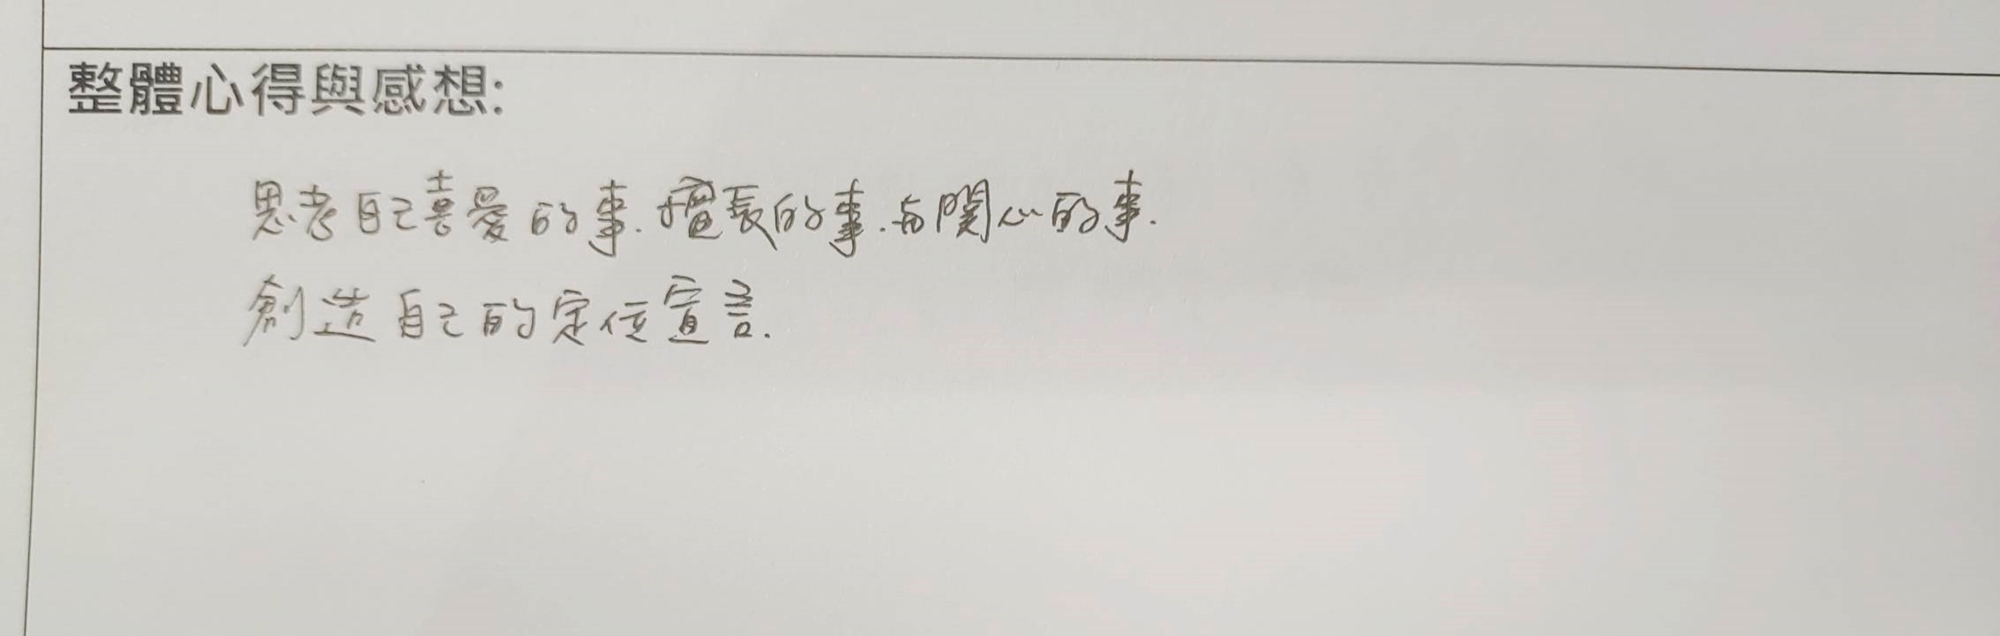 整體心得與感想:
思考自己喜愛的事.擅長的事.与關心的事.
創造自己的定位宣言.